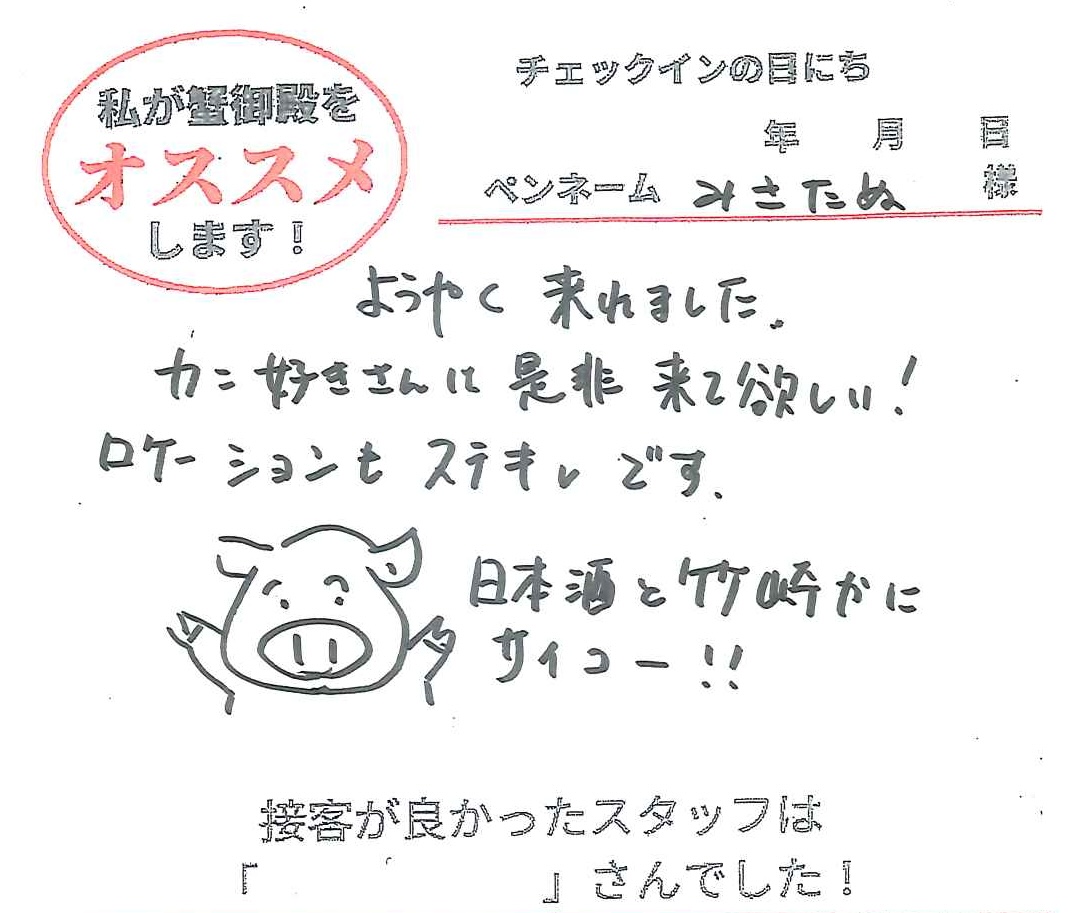 私が蟹御殿を
オススメ
します！
チェックインの日にち
年 月 日
ペンネーム みさたぬ 様
ようやく 来れました。
カニ好きさんに 是非 来て欲しい！
ロケーションも ステキレ です。
日本酒と竹崎かに
サイコー!!
接客が良かったスタッフは
「 」さんでした！